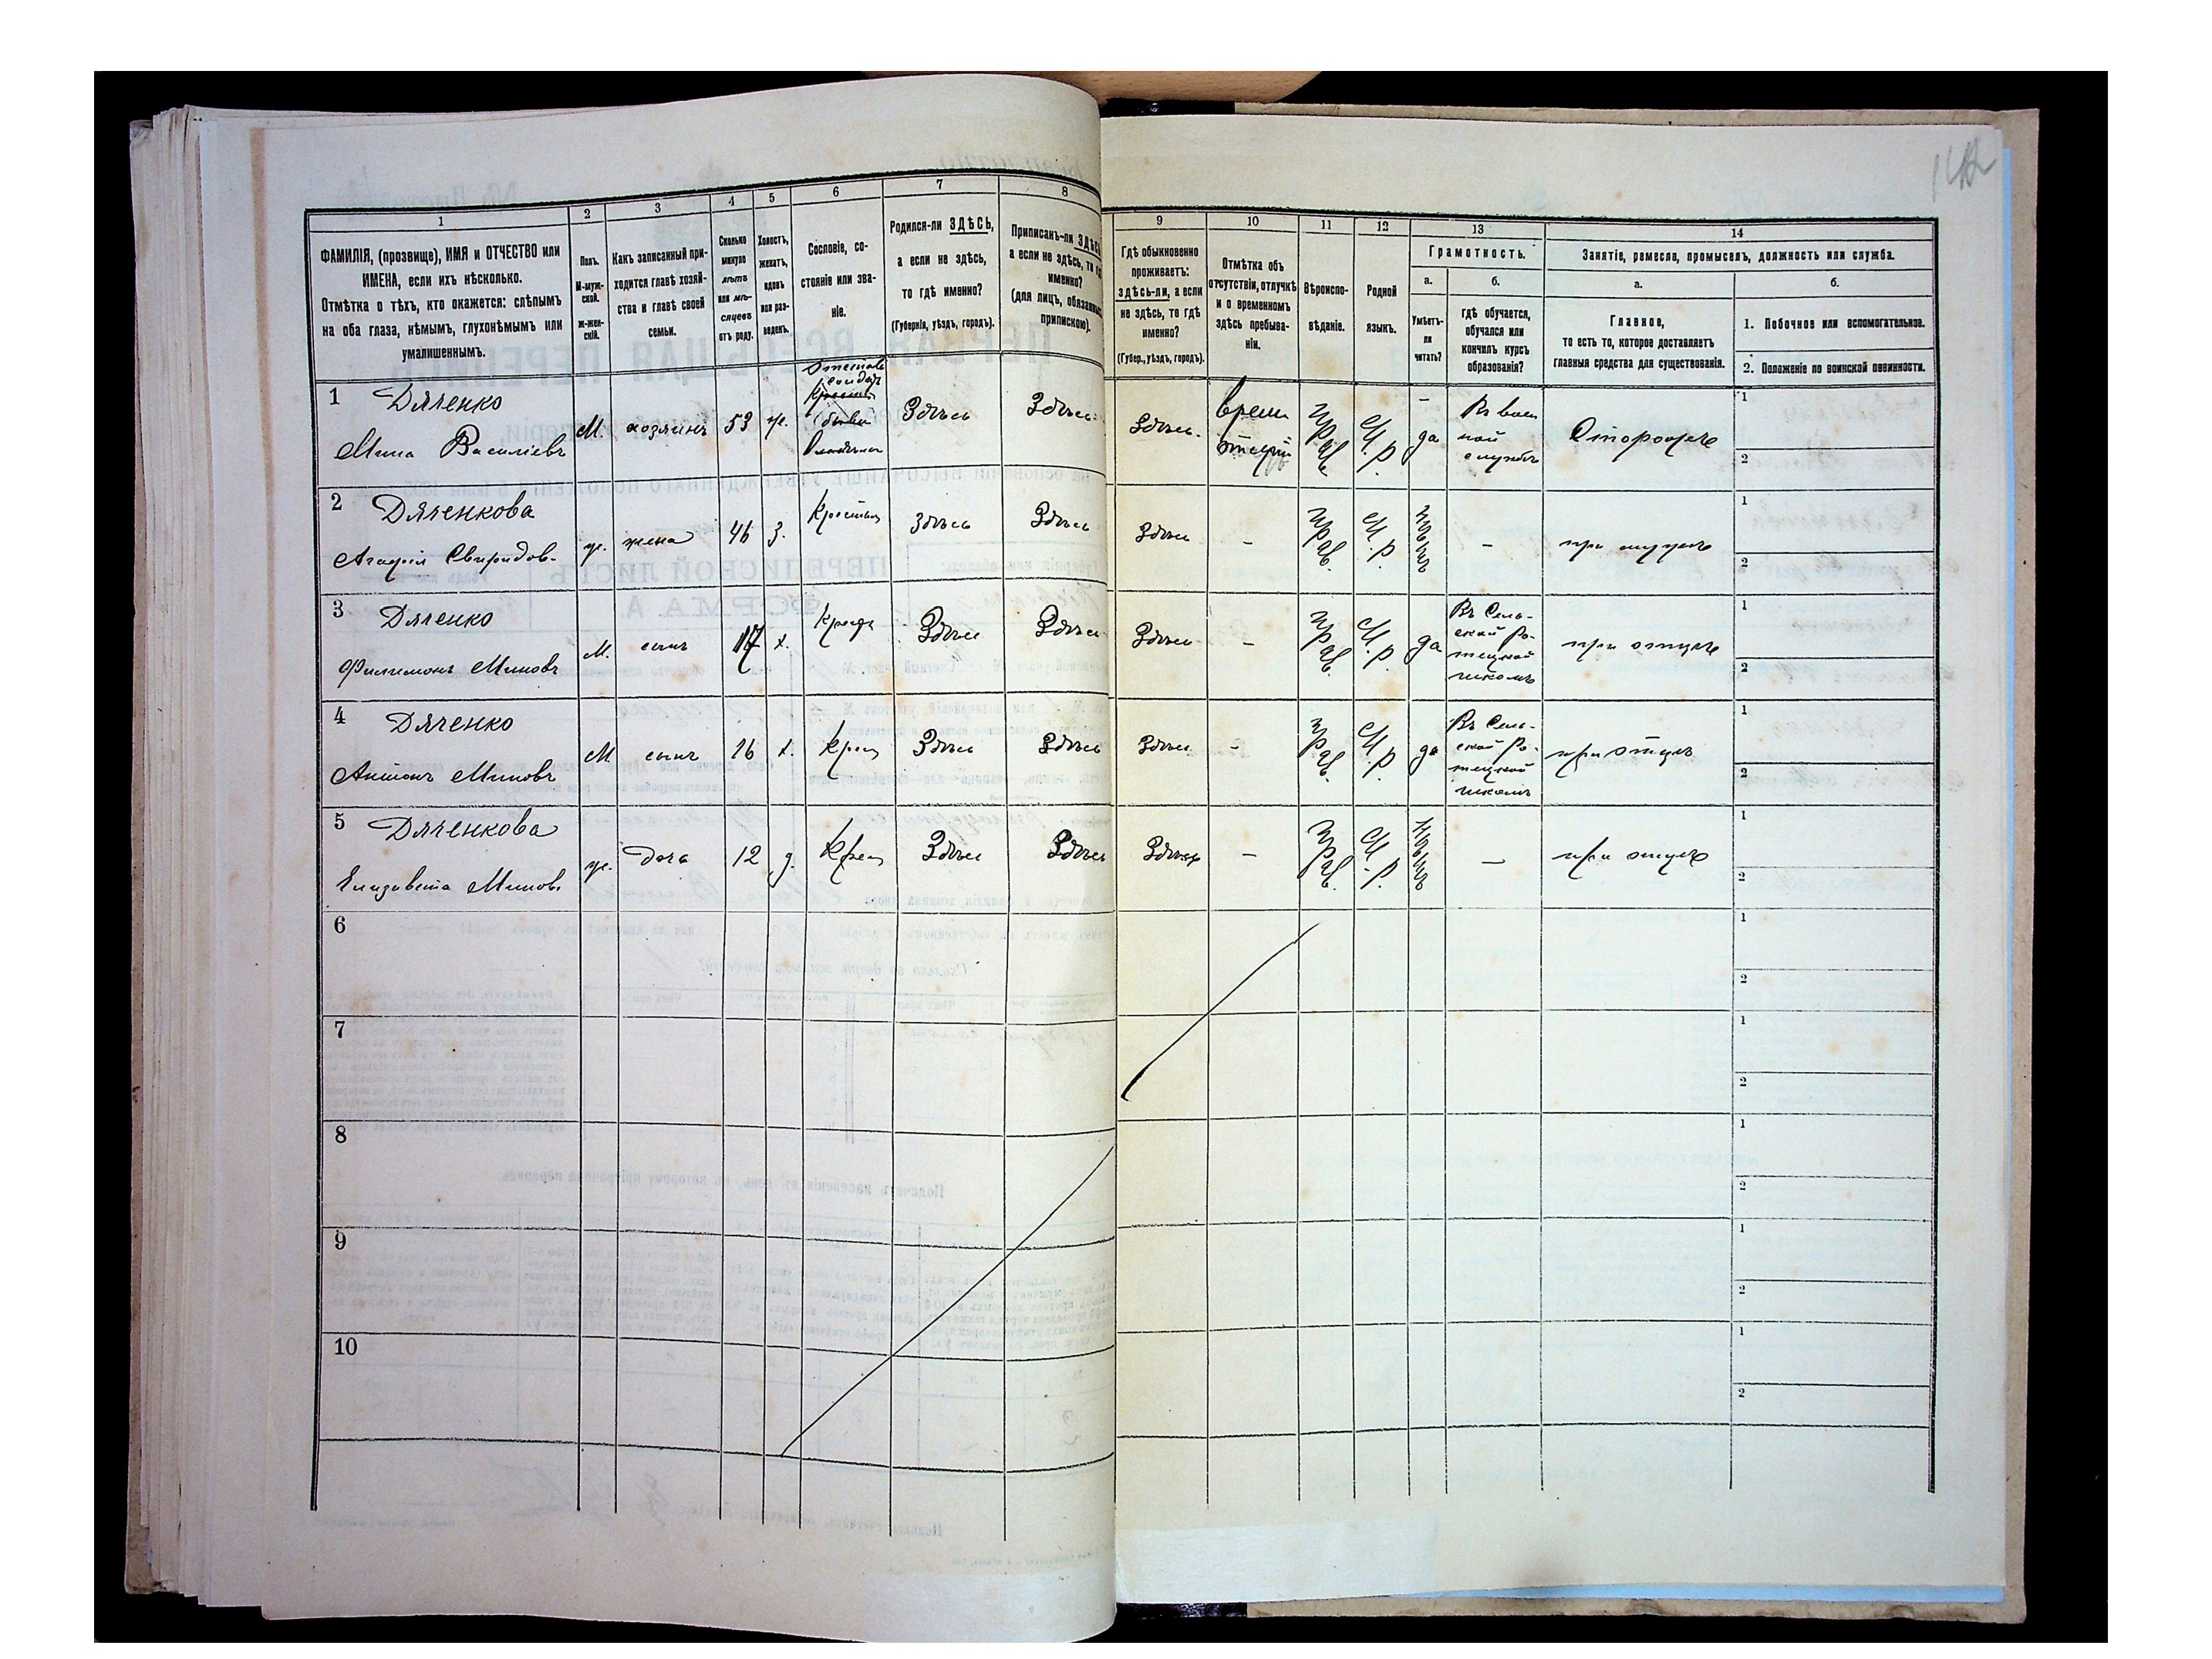 142
1
2
3
4
5
6
7
8
ФАМИЛІЯ, (прозвище), ИМЯ и ОТЧЕСТВО или
ИМЕНА, если ихъ нѣсколько.
Отмѣтка о тѣхъ, кто окажется: слѣпымъ
на оба глаза, нѣмымъ, глухонѣмымъ или
умалишеннымъ.
Полъ.
М-муж-
ской.
ж-жен-
скій.
Какъ записанный при-
ходится главѣ хозяй-
ства и главѣ своей
семьи.
Сколько
минуло
лѣтъ
или мѣ-
сяцевъ
отъ роду.
Холостъ,
женатъ,
вдовъ
или раз-
веденъ.
Сословіе, со-
стояніе или зва-
ніе.
Родился-ли ЗДѢСЬ,
а если не здѣсь,
то гдѣ именно?
(Губернія, уѣздъ, городъ).
Приписанъ-ли ЗДѢСЬ
а если не здѣсь, то
именно?
(для лицъ,
припискою).
9
10
11
12
13
14
Гдѣ обыкновенно
проживаетъ:
ЗДѢСЬ-ли, а если
не здѣсь, то гдѣ
именно?
(Губер., уѣздъ, городъ).
Отмѣтка объ
отсутствіи, отлучкѣ
и о временномъ
здѣсь пребыва-
ніи.
Вѣроиспо-
вѣданіе.
Родной
языкъ.
Грамотность.
а.
б.
Умѣетъ-
ли
читать?
гдѣ обучается,
обучался или
кончилъ курсъ
образованія?
Занятіе, ремесло, промыселъ, должность или служба.
а.
б.
Главное,
то есть то, которое доставляетъ
главныя средства для существованія.
1. Побочное или вспомогательное.
2. Положеніе по воинской повинности.
1 Дяченко
Мина Василіевъ
М.
хозяинъ
53
ж.
солдатъ
Здѣсь
Здѣсь
Здѣсь.
врем
Прав
М.р.
да
Въ воен
ной
службѣ
Сторожъ
1
2
2 Дяченкова
Агафія Свиридов.
ж.
жена
46
З.
Крестьян
Здѣсь
Здѣсь
Здѣсь
-
Прав.
М.р.
-
при мужѣ
1
2
3 Дяченко
Филимонъ Миновъ
М.
сынъ
17
х.
Здѣсь
Здѣсь
Здѣсь
-
Прав.
М.р.
да
Въ Сель-
ской Ро-
школѣ
при отцѣ
1
2
4 Дяченко
Антонъ Миновъ
М
сынъ
16
х.
Крес
Здѣсь
Здѣсь
Здѣсь
-
Прав.
М.р.
да
Въ Сель-
ской Ро-
школѣ
при отцѣ
1
2
5 Дяченкова
Елизавета Минов.
ж.
дочь
12
д.
Крес
Здѣсь
Здѣсь
Здѣсь
-
Прав.
М.р.
-
при отцѣ
1
2
6
1
2
7
1
2
8
1
2
9
1
2
10
1
2